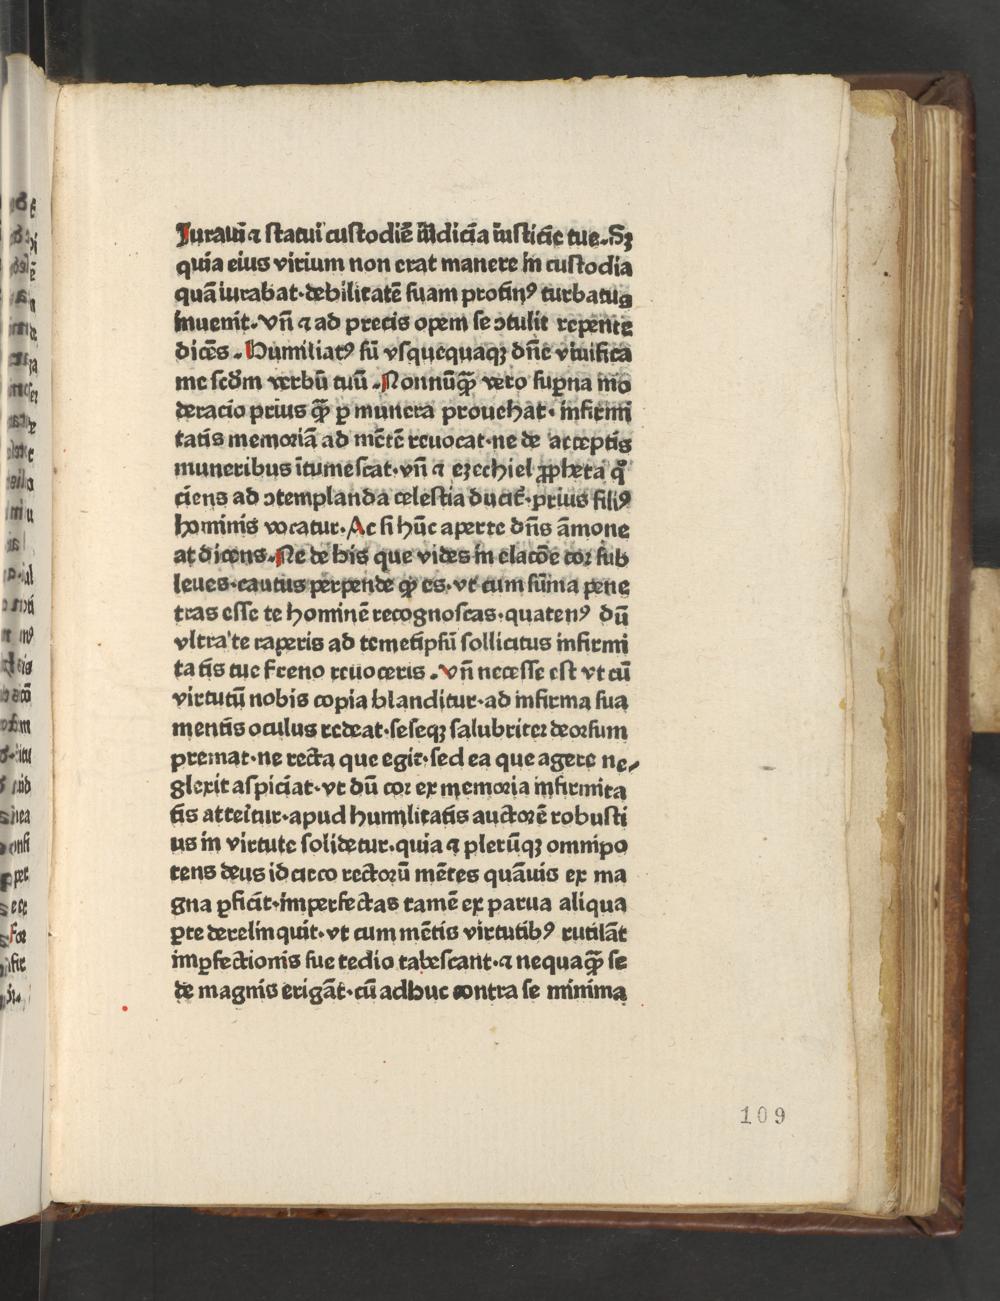 Iuraui ⁊ statui custodiē iudicia iusticie tue. Sꝫ
quia eius virium non erat manere in custodia
quā iurabat·debilitatē suam protinꝰ turbatus
inuenit·vn̄ ⁊ ad precis opem se ꝯtulit repente
dicēs. Humiliatꝰ sū vsquequaqꝫ dn̄e viuifica
me scd̄m verbū tuū. Nonnūꝙ̄ vero suꝑna mo
deracio prius ꝙ̄ ꝑ munera prouehat· infirmi
tatis memoriā ad mētē reuocat·ne de acceptis
muneribus ītumescat·vn̄ ⁊ ezechiel ꝓpheta qͦ
ciens ad ꝯtemplanda celestia ducit̄·prius filiꝰ
hominis vocatur·Ac si hūc aperte dn̄s āmone
at dicens. Ne de his que vides in elacōe cor sub
leues·cautius perpende qͦ es·vt cum sūma pene
tras esse te hominē recognoscas·quatenꝰ dū
vltra te raperis ad temetip̄sū sollicitus infirmi
tatis tue freno reuoceris. vn̄ necesse est vt cū
virtutū nobis copia blanditur·ad infirma sua
mentis oculus redeat·seseqꝫ salubriter deorsum
premat·ne recta que egit·sed ea que agere ne⸗
glexit aspiciat·vt dū cor ex memoria infirmita
tis atteritur·apud humilitatis auctorē robusti
us in virtute solidetur·quia ⁊ plerūqꝫ omnipo
tens deus idcirco rectorū mētes quāuis ex ma
gna ꝑficit·imperfectas tamē ex parua aliqua
ꝑte derelinquit·vt cum mētis virtutibꝰ rutilāt
imꝑfectionis sue tedio tabescant·⁊ nequaꝙ̄ se
de magnis erigāt·cū adhuc contra se minima
109